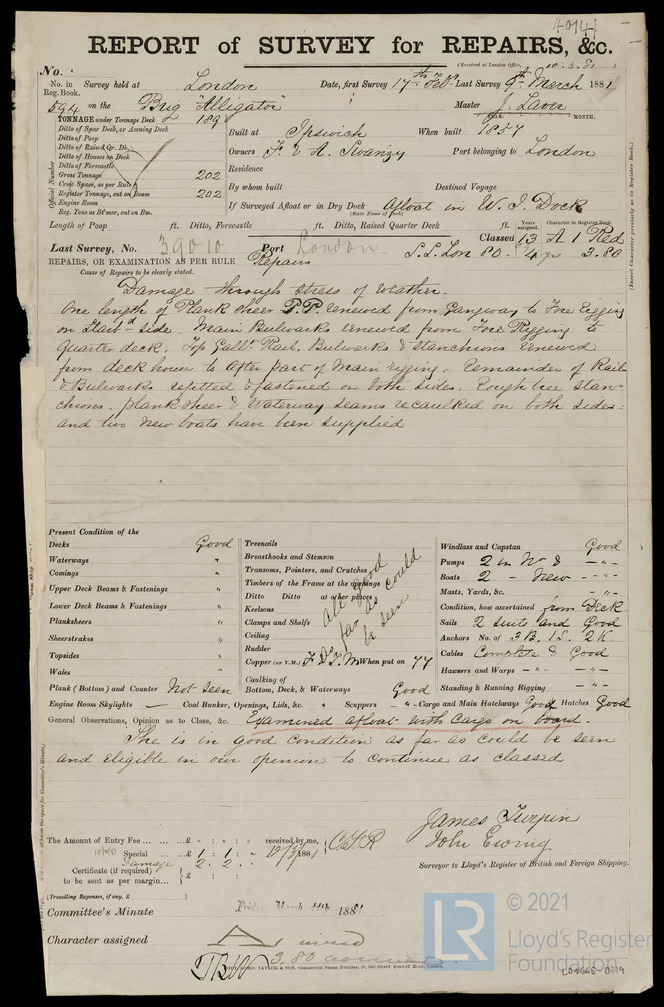 40141
REPORT of SURVEY for REPAIRS, &c.
(Received at London Office, 10.3.81)
No.
No. in Reg. Book. Survey held at London Date, first Survey 17th Feb Last Survey 9th March 1881
594 on the Brig "Alligator" Master J. Laver
TONNAGE under Tonnage Deck 189
YEAR. MONTH.
Ditto of Spar Deck, or Awning Deck
Built at Ipswich When built 1857
Ditto of Poop
Ditto of Raised Qr. Dk.
Ditto of Houses on Deck
Owners F & A. Swanzy Port belonging to London
Ditto of Forecastle
Gross Tonnage 202
Residence
Crew Space, as per Rule
Register Tonnage, cut on Beam 202
By whom built Destined Voyage
Engine Room
Reg. Tons as St'mer, cut on Bm.
If Surveyed Afloat or in Dry Dock Afloat in W. I. Dock
(State Name of Dock)
Official Number
Length of Poop ft. Ditto, Forecastle ft. Ditto, Raised Quarter Deck ft.
Years assigned. Character in Register Book.
Last Survey, No. 39010 Port London Classed 13 A 1 Red
REPAIRS, OR EXAMINATION AS PER RULE Repairs S.S. Lon 80. 4 yrs 3.80
Cause of Repairs to be clearly stated.
(Insert Character precisely as in Register Book.)
Damage through stress of weather.
One length of Plank sheer P.P. renewed from Gangway to Fore Rigging
on Starbd side. Main Bulwarks renewed from Fore Rigging to
Quarter deck. Top Gallt Rail, Bulwarks & stanchions renewed
from deck house to After part of Main rigging. Remainder of Rail
& Bulwarks refitted & fastened on both sides: Rough tree stan-
chions, planksheer & Waterway seams recaulked on both sides:
and two new boats have been supplied
Present Condition of the
Decks Good
Waterways "
Comings "
Upper Deck Beams & Fastenings "
Lower Deck Beams & Fastenings "
Planksheers "
Sheerstrakes "
Topsides "
Wales "
Plank (Bottom) and Counter Not seen
Treenails
Breasthooks and Stemson
Transoms, Pointers, and Crutches
Timbers of the Frame at the openings
Ditto Ditto at other places
Keelsons
Clamps and Shelfs
Ceiling
Rudder
all good
as far as could
be seen
Copper (or Y.M.) F & Y.M When put on 77
Caulking of
Bottom, Deck, & Waterways Good
Windlass and Capstan Good
Pumps 2 in No & -"-
Boats 2 - New -"-
Masts, Yards, &c. -"-
Condition, how ascertained from Deck
Sails 2 suits and Good
Anchors No. of 3B. 1S. 2K.
Cables Complete & Good
Hawsers and Warps -"- -"-
Standing & Running Rigging -"-
Engine Room Skylights — Coal Bunker, Openings, Lids, &c. " Scuppers -"- Cargo and Main Hatchways Good Hatches Good
General Observations, Opinion as to Class, &c. Examined afloat with Cargo on board.
She is in good condition as far as could be seen
and eligible in our opinion to continue as classed
James Turpin
John Ewing
Surveyor to Lloyd's Register of British and Foreign Shipping.
The Amount of Entry Fee ... ... ...£ : : received by me,
Special ... ...£ 1 : 1 : 10/3/1881
Damage 2 : 2 :
Certificate (if required) £ : :
to be sent as per margin...
(Travelling Expenses, if any, £ )
Committee's Minute Friday March 11th 1881
Character assigned A 1
3.80
TAYLOR & SON, Commercial Steam Printers, 19, Old Street Goswell Road, London.
© 2021
LR
Lloyd's Register
Foundation
LON665-0219